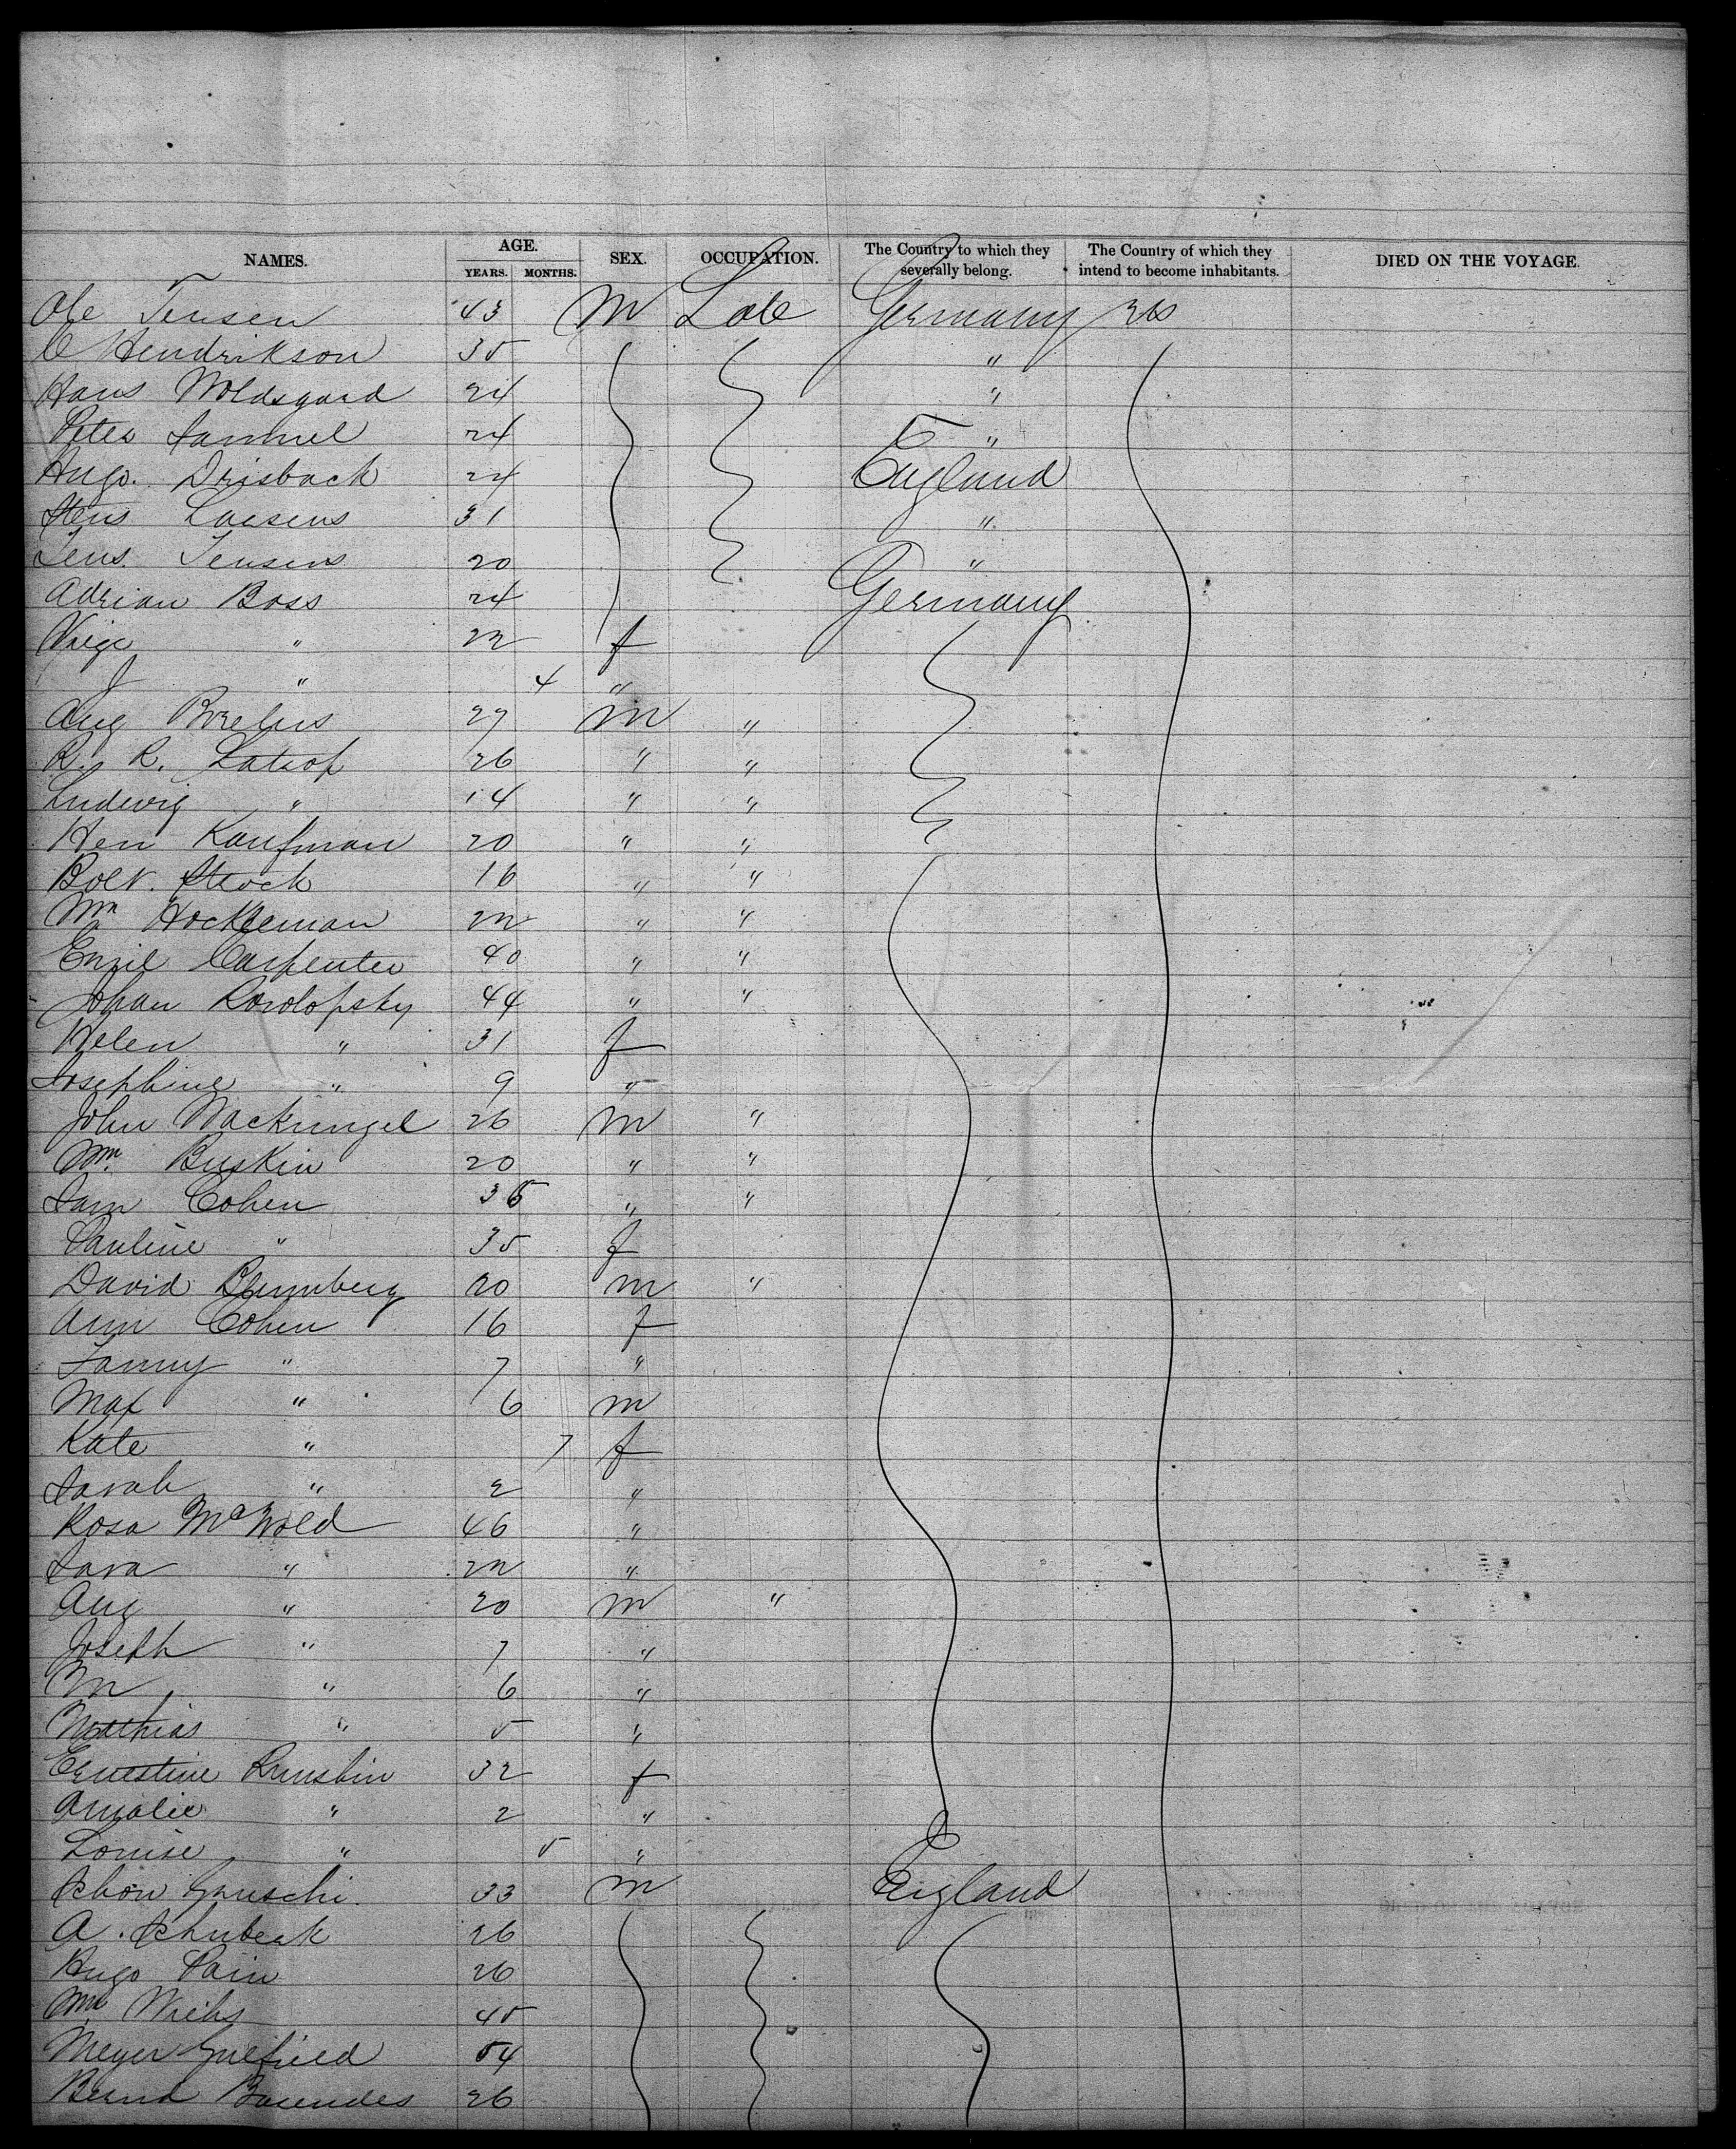 NAMES. AGE. YEARS. MONTHS. SEX. OCCUPATION. The Country to which they severally belong. The Country of which they intend to become inhabitants. DIED ON THE VOYAGE.
Ole Jensen 43 M Lab Germany US
C Hendrikson 35 "
Hans Woldsgaard 24 "
Peter Samuel 24 "
Hugo. Drisback 24 England
Jens Laesens 31 "
Jens. Jensen 20 "
Adrian Boss 24 Germany
" 22 f
J " 4 "
Aug Brelius 27 M "
R. R. Latrop 26 " "
Ludwig " 14 " "
Hen Kaufman 20 " "
Stock 16 " "
Wm Hockleman 22 " "
Emil Carpenter 40 " "
Johan Rordopsky 44 " "
Helen " 31 f
Josephine " 9 "
John Mackringel 26 M "
Wm. Buskin 20 " "
Sam Cohen 36 " "
Pauline " 35 f
David Blumberg 20 M "
Ann Cohen 16 f
Fanny " 7 "
Max " 6 M
Kate " 7 f
Sarah " 2 "
Rosa McWold 46 "
Sara " 22 "
Aug " 20 M "
Joseph " 7 "
M " 6 "
Mathias " 5 "
Ernestine Rumsbin 32 f
Amalie " 2 "
Louise " 5 "
33 M England
A. Schubeak 26
Hugo Pain 26
Wm Wiehs 45
Meyer 54
Bernd Barendes 26